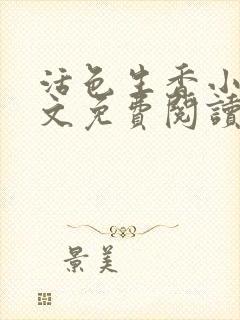 活色生香小
文免費閱讀
景美